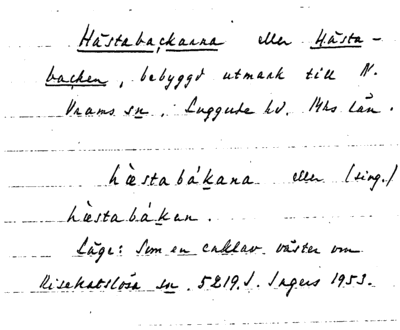 Hästabackarna eller Hästa-
backen, bebyggd utmark till N.
Vrams sn, Luggude hd. Mhs län.
hæstabákana eller (sing.)
hæstabákan.
Läge: Som en enklav väster om
Risekatslösa sn. 5219. J. Ingers 1953.